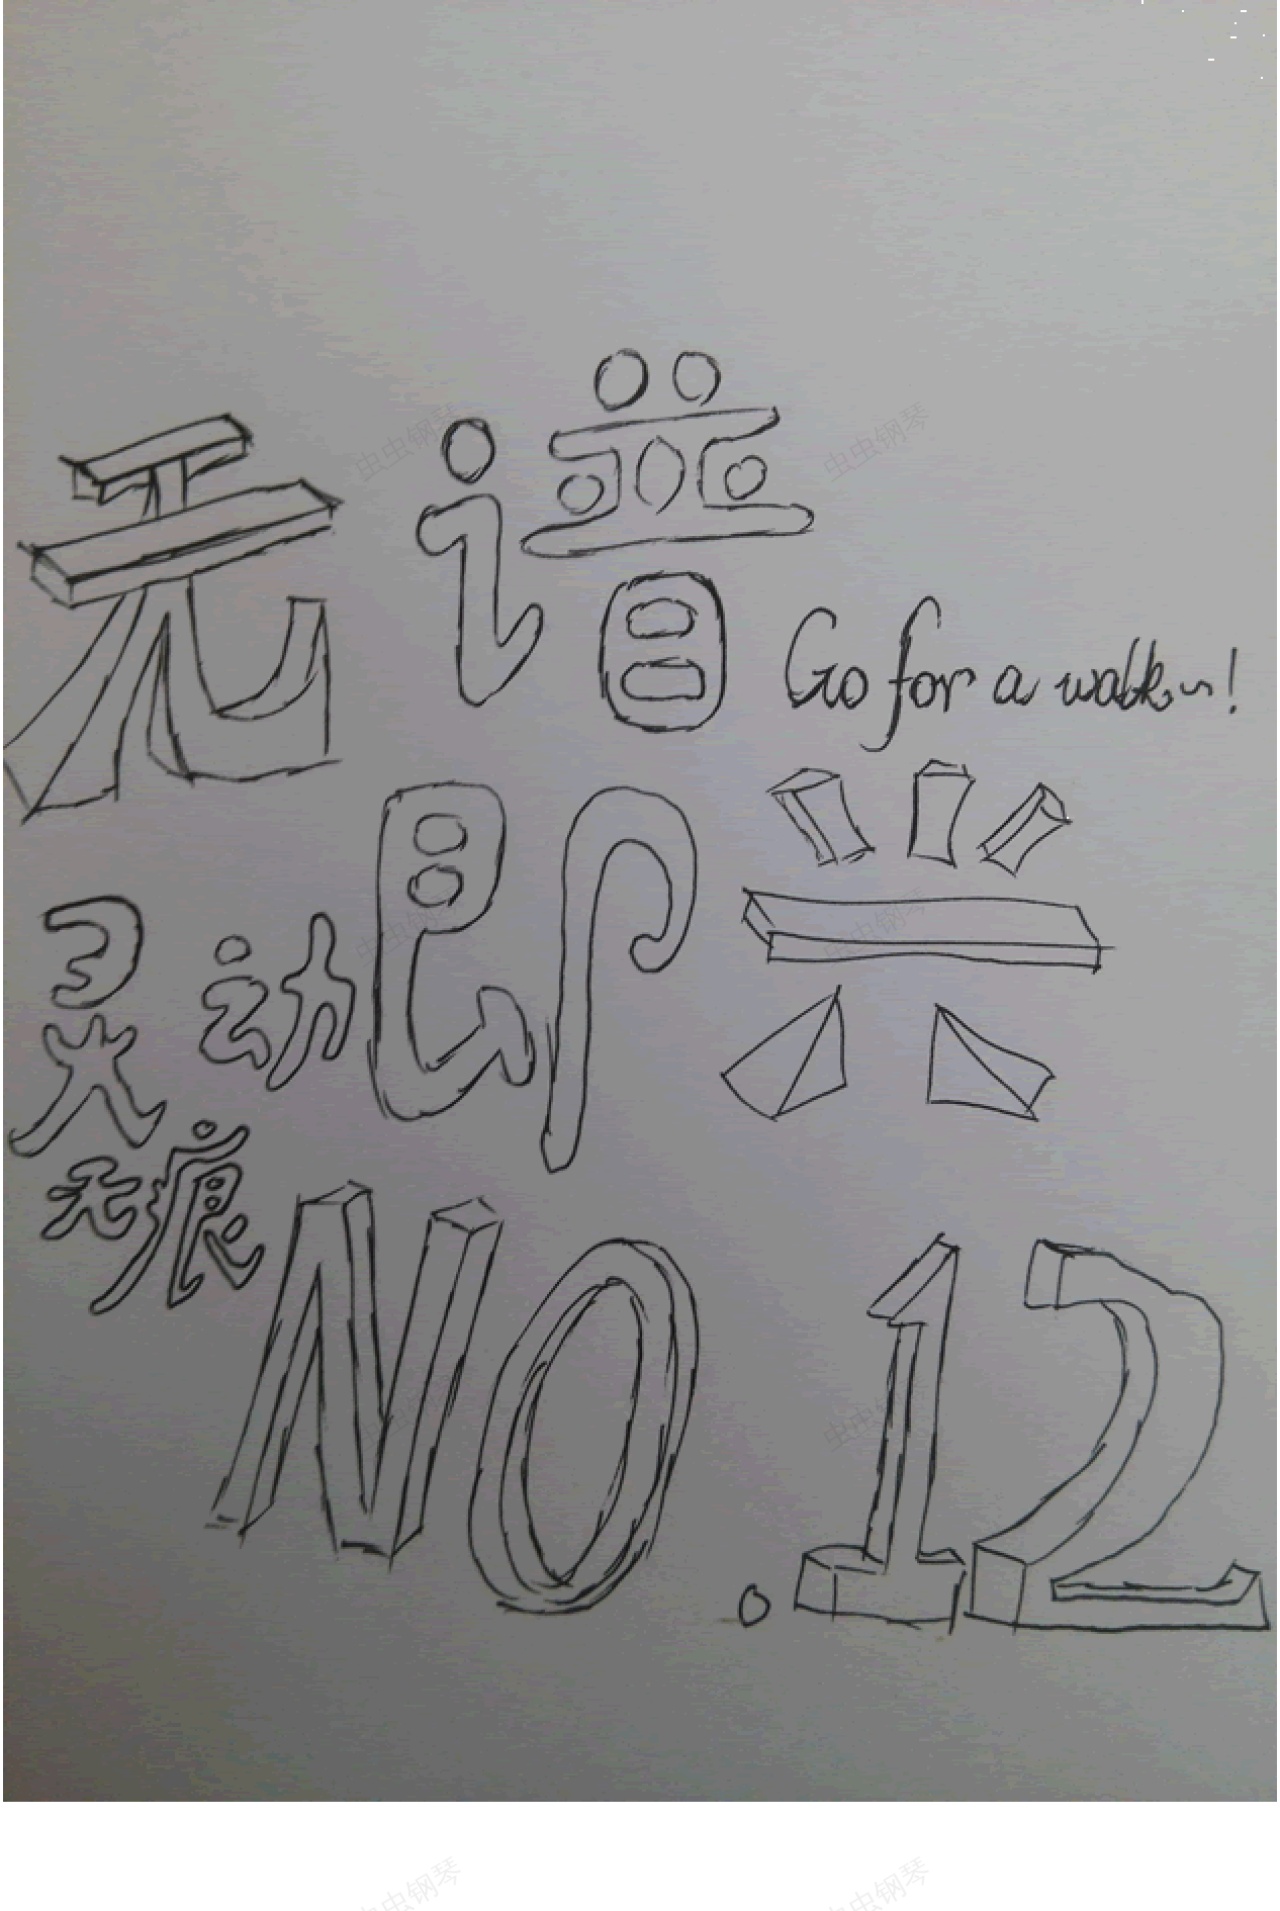 无谱
Go for a walk~!
即兴
灵动
无痕
NO.12
虫虫钢琴
虫虫钢琴
虫虫钢琴
虫虫钢琴
虫虫钢琴
虫虫钢琴
虫虫钢琴
虫虫钢琴